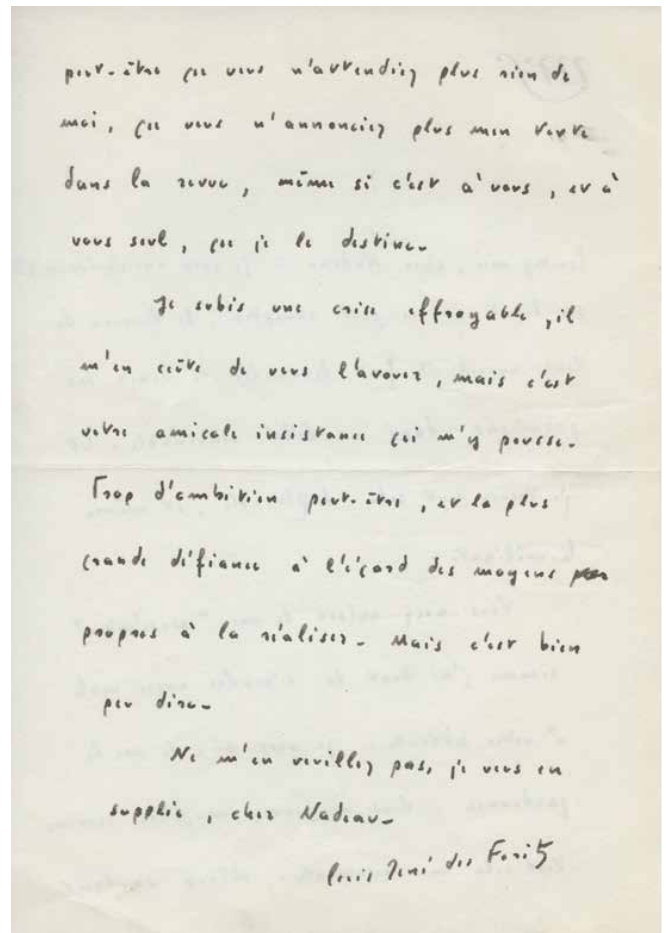 peut-être que vous n'attendiez plus rien de
moi, que vous n'annonciez plus mon texte
dans la revue, même si c'est à vous, et à
vous seul, que je le destine.
Je subis une crise effroyable, il
m'en coûte de vous l'avouer, mais c'est
votre amicale insistance qui m'y pousse.
Trop d'ambition peut-être, et la plus
grande défiance à l'égard des moyens
propres à la réaliser. Mais c'est bien
peu dire.
Ne m'en veuillez pas, je vous en
supplie, cher Nadeau.
Louis René des Forêts